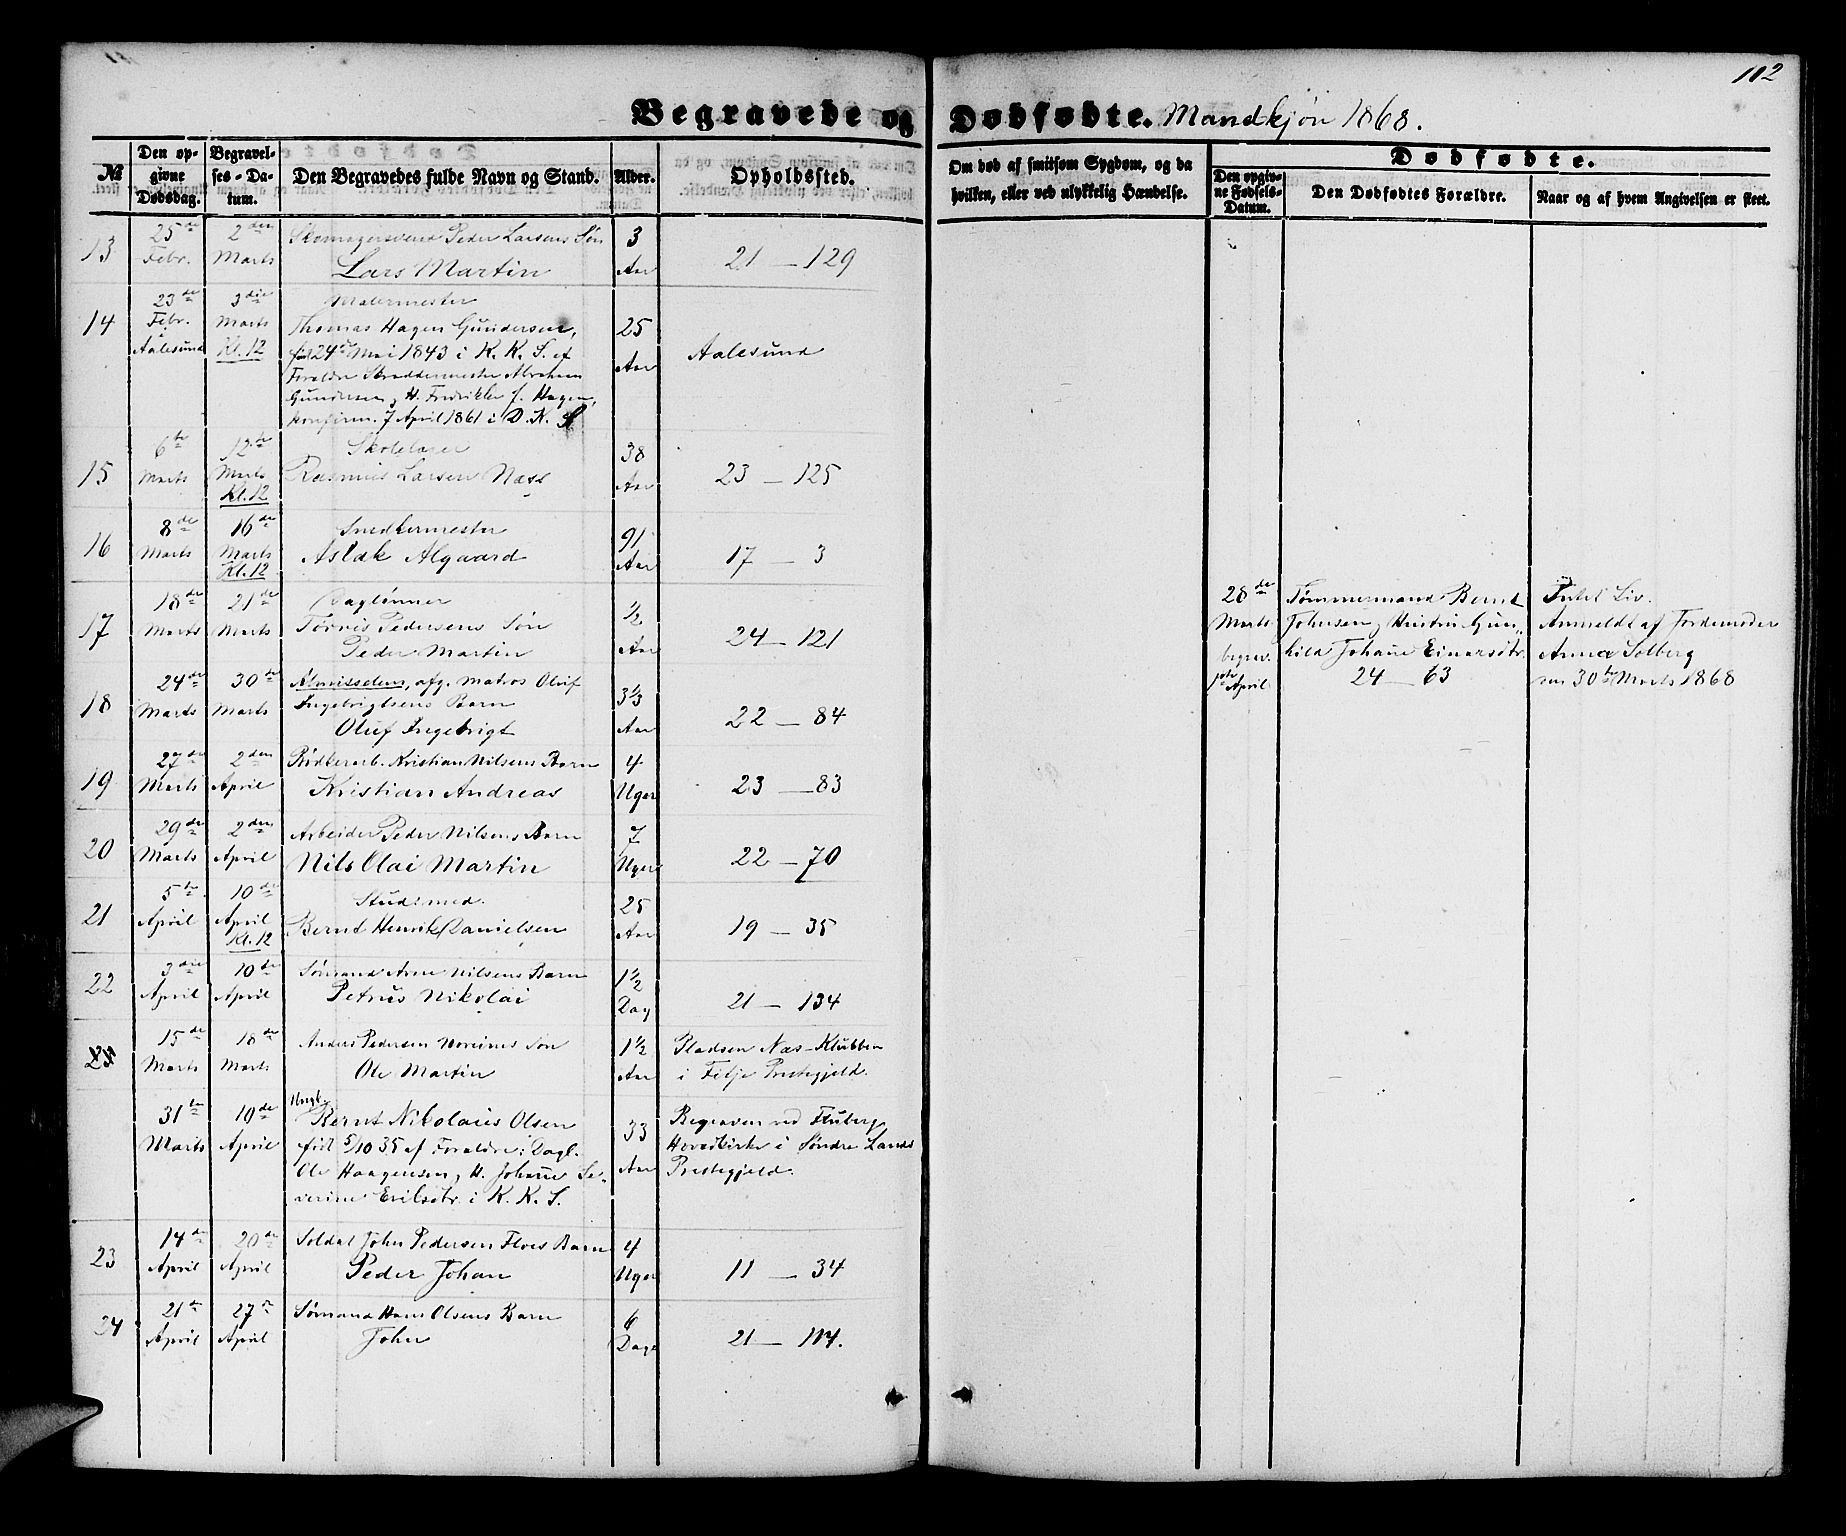 112
Begravede og Dødfødte. Mandkjøn 1868.
№
Den opgivne Dødsdag.
Begravelses-Datum.
Den Begravedes fulde Navn og Stand.
Alder.
Opholdssted.
Om død af smitsom Sygdom, og da hvilken, eller ved ulykkelig Hændelse.
Dødfødte.
Den opgivne Fødsels-Datum.
Den Dødfødtes Forældre.
Naar og af hvem Angivelsen er skeet.
13
25de Febr.
2den Marts
Skomagersvend Peder Larsens Søn
Lars Martin
3 Aar
21 — 129
14
23de Febr. i Aalesund
3die Marts Kl. 12
Malermester
Thomas Hagen Gundersen,
født 24de Mai 1843 i K. K. S. af
Forældre Skræddermester Abraham
Gundersen og H. Fredrikke f. Hagen,
konfirm. 7 April 1861 i D. K. S
25 Aar
Aalesund
15
6te Marts
12te Marts Kl. 12
Skolelærer
Rasmus Larsen Næss
38 Aar
23 — 125
16
8de Marts
16de Marts Kl. 12
Snedkermester
Aslak Algaard
91 Aar
17 — 3
17
18de Marts
21de Marts
Daglønner
Tørris Pedersens Søn
Peder Martin
1/2 Aar
24 — 121
28de Marts begrav. 1ste April
Tømmermand Bernt
Johnsen og Hustru Gun-
hild Johane Einarsdtr.
24 — 63
Intet Liv.
Anmeldt af Jordemoder
Anna Solberg
den 30te Marts 1868
18
24de Marts
30te Marts
Almisselem, afg. matros Oluf
Ingebrigtsens Barn
Oluf Ingebrigt
3 1/3 Aar
22 — 84
19
27de Marts
2den April
Bødkerarb. Kristian Nilsens Barn
Kristian Andreas
4 Uger
23 — 83
20
29de Marts
2den April
Arbeider Peder Nilsens Barn
Nils Olai Martin
7 Uger
22 — 70
21
5te April
10de April Kl. 12
Stud. med.
Bernt Henrik Danielsen
25 Aar
19 — 35
22
3die April
10de April
Sømand Arne Nilsens Barn
Petrus Nikolai
1 1/2 Dag
21 — 134
15de Marts
18de Marts
Anders Pedersen Noreines Søn
Ole Martin
1 1/2 Aar
Pladsen Næs-Klubben
i Feije Prestegjeld.
31te Marts
10de April
Ungk.
Bernt Nikolaus Olsen
født 5/10 35 af Forældre: Dagl.
Ole Haagensen og H. Johane Se-
verine Eriksdtr. i K. K. S.
33 Aar
Begraven ved Fluberg
Hovedkirke i Søndre Lands
Prestegjeld.
23
14de April
20de April
Soldat John Pedersen Floes Barn
Peder Johan
4 Uger
11 — 34
24
21de April
27de April
Sømand Hans Olsens Barn
John
6 Dage
21 — 114.